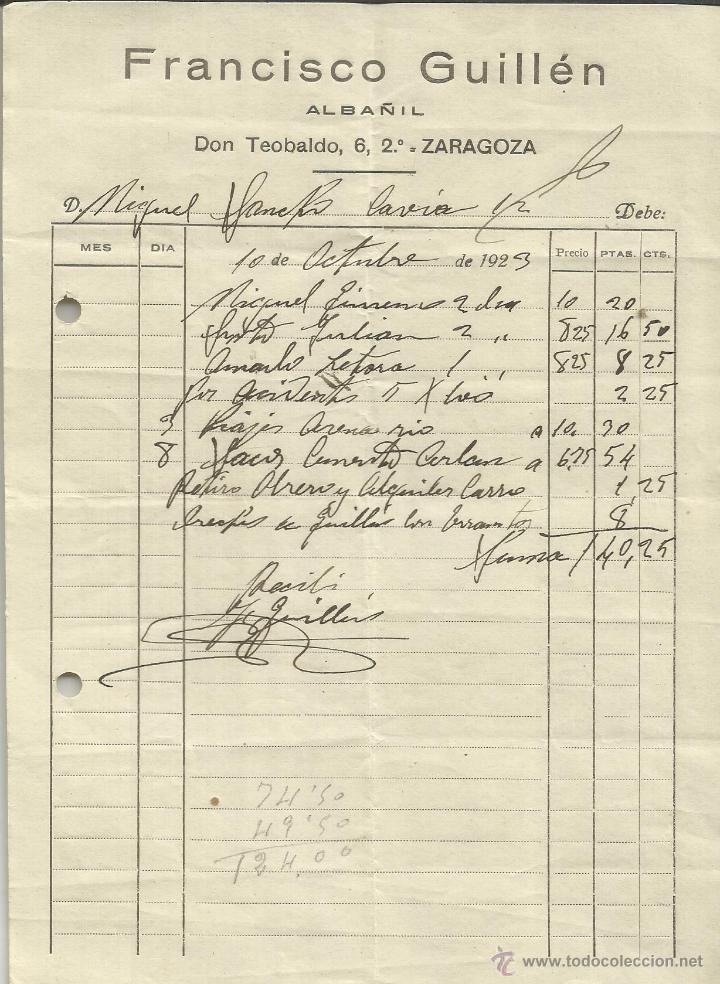 Francisco Guillén
ALBAÑIL
Don Teobaldo, 6, 2.º - ZARAGOZA
D. Miguel Sancho Cavia 12 Debe:
MES DIA 10 de Octubre de 1923 Precio PTAS. CTS.
Miguel 2 dia 10 20
Julian 2 " 8 25 16 50
1 " 8 25 8 25
por accidentes 2 25
3 Viajes Arena rio a 10, 30
8 Sacos Cemento a 6,75 54
Retiro Obrero y Alquiler Carro 1,25
de Guillén con 8
Suma 140,25
Recibi
F. Guillén
74'50
49'50
124.00
www.todocoleccion.net